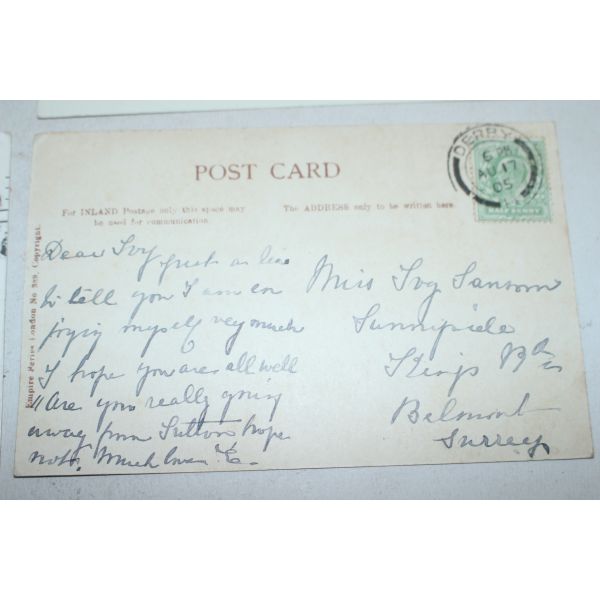 POST CARD
For INLAND Postage only this space may
be used for communication
The ADDRESS only to be written here.
DERBY
6 PM
AU 17
05
HALF PENNY
Empire Series London No 339. Copyright.
Dear Ivy just a line
to tell you I am en
joying myself very much
I hope you are all well
Are you really going
away from Sutton hope
not. Much love E.
Miss Ivy Sansom
Sunnyside
Kings Rd
Belmont
Surrey